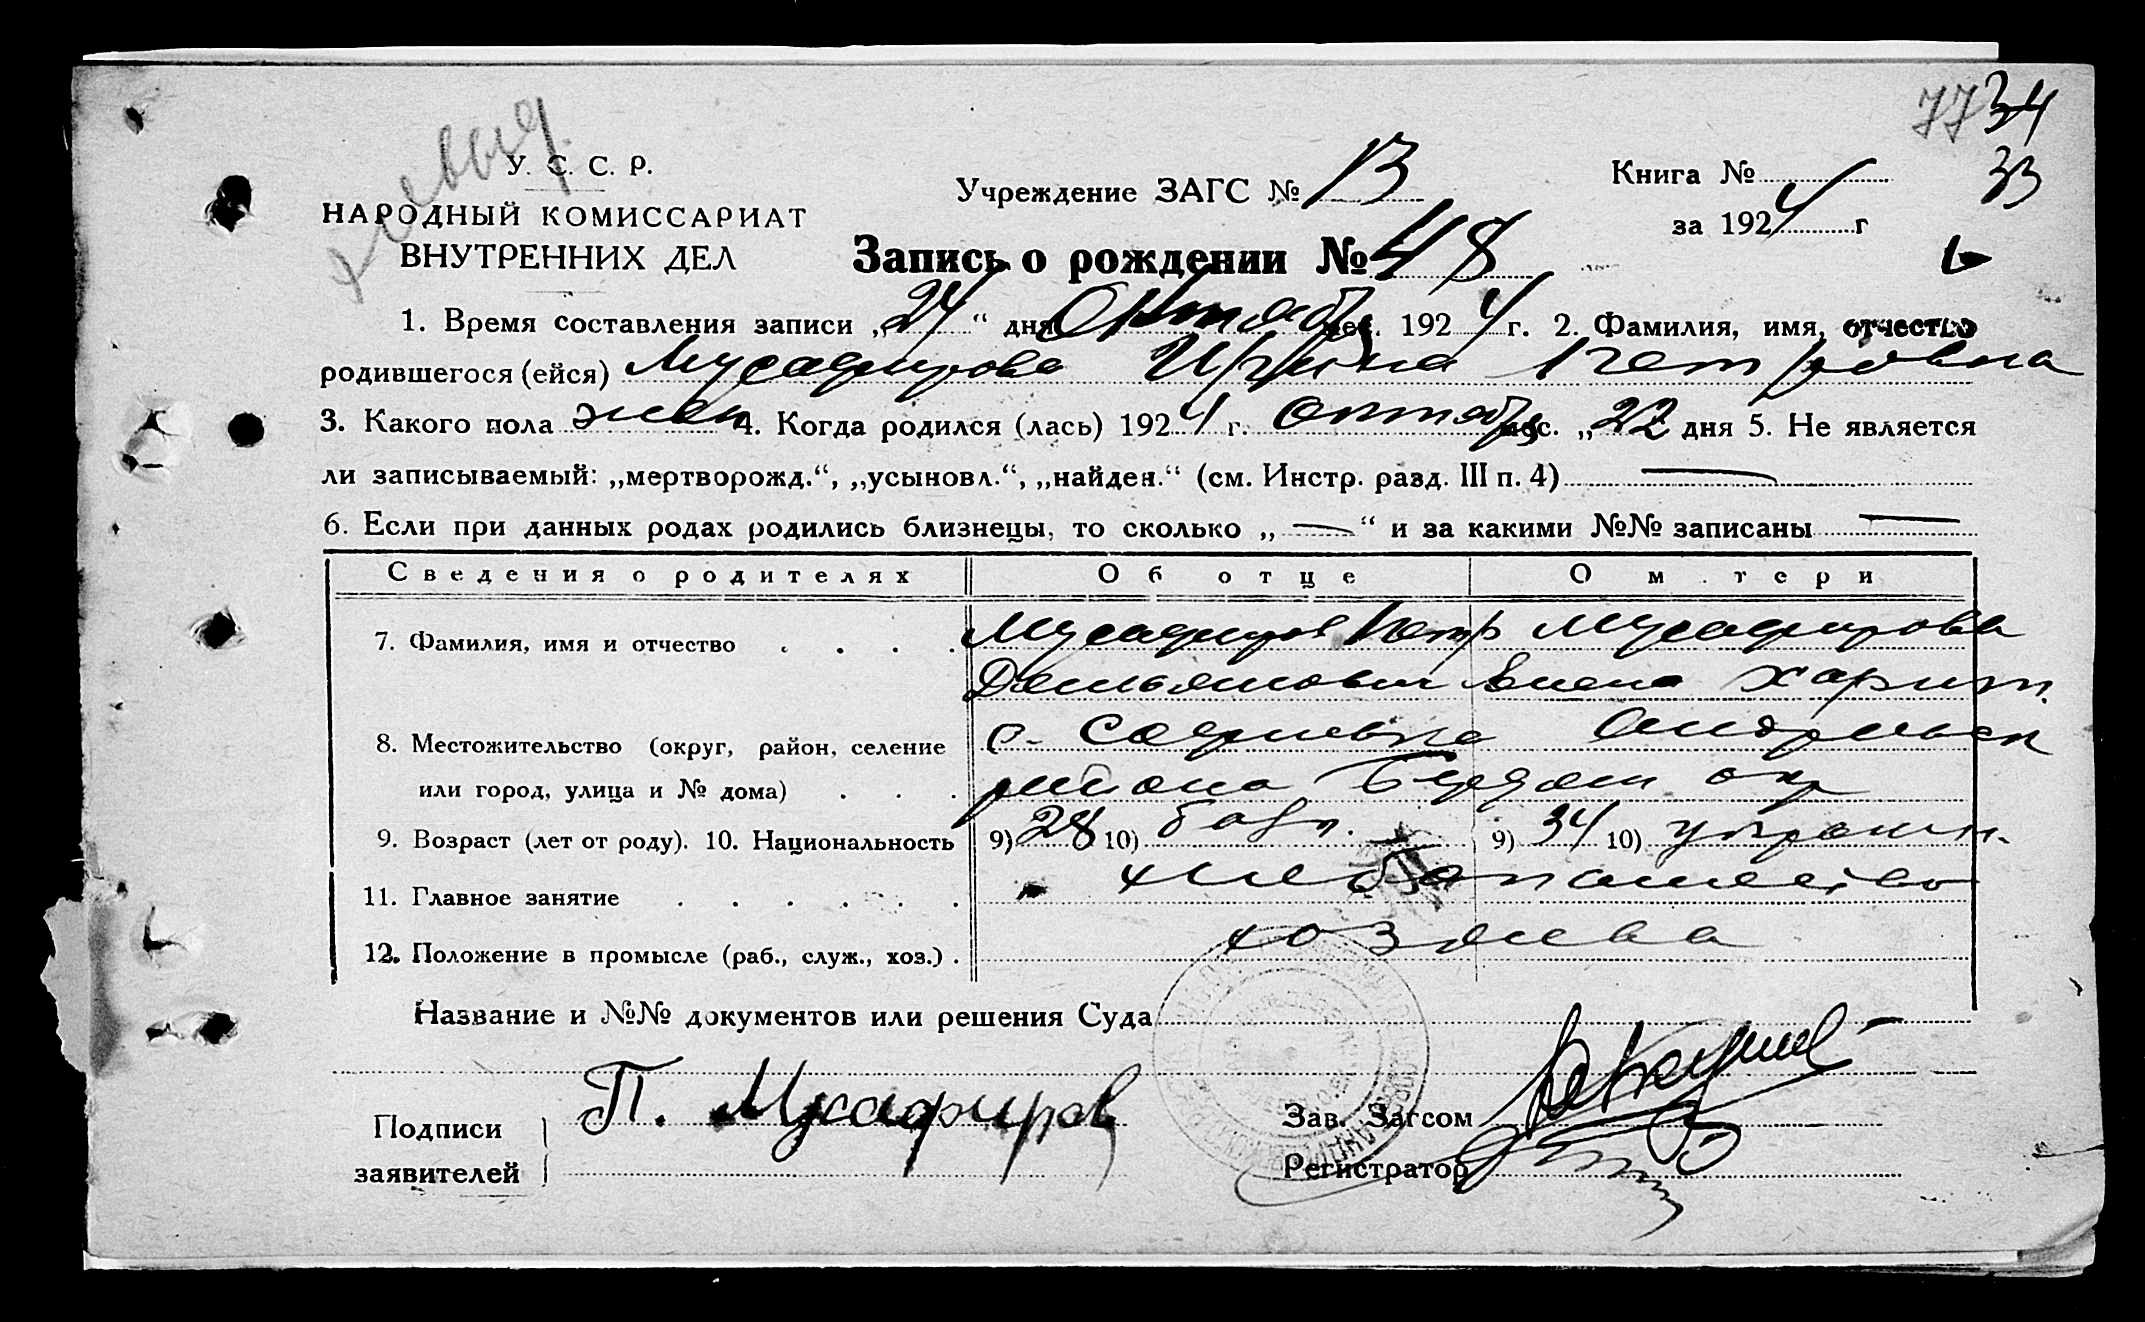 77 34
33
У. С. С. Р.
НАРОДНЫЙ КОМИССАРИАТ
ВНУТРЕННИХ ДЕЛ
Учреждение ЗАГС № 13
Книга №
за 1924 г
Запись о рождении № 48
1. Время составления записи „24“ дня Октяб мес. 1924 г. 2. Фамилия, имя, отчество
родившегося (ейся) Мусафирова Ирина Петровна
3. Какого пола жен 4. Когда родился (лась) 1924 г. октябр мес. „22 дня 5. Не является
ли записываемый: „мертворожд.“, „усыновл.“, „найден.“ (см. Инстр. разд. III п. 4) —
6. Если при данных родах родились близнецы, то сколько „—“ и за какими №№ записаны —
Сведения о родителях Об отце О м.тери
7. Фамилия, имя и отчество . . . . Мусафиров Петр Мусафирова
Демьянович Елена Харит.
8. Местожительство (округ, район, селение с. Софиевка Андреевск
или город, улица и № дома) . . . района Бердян окр
9. Возраст (лет от роду). 10. Национальность 9) 28 10) болг. 9) 34 10) украин.
11. Главное занятие . . . . . . хлебопашество
12. Положение в промысле (раб., служ., хоз.) . хозяева
Название и №№ документов или решения Суда
Подписи
заявителей
П. Мусафиров
Зав. Загсом
Регистратор